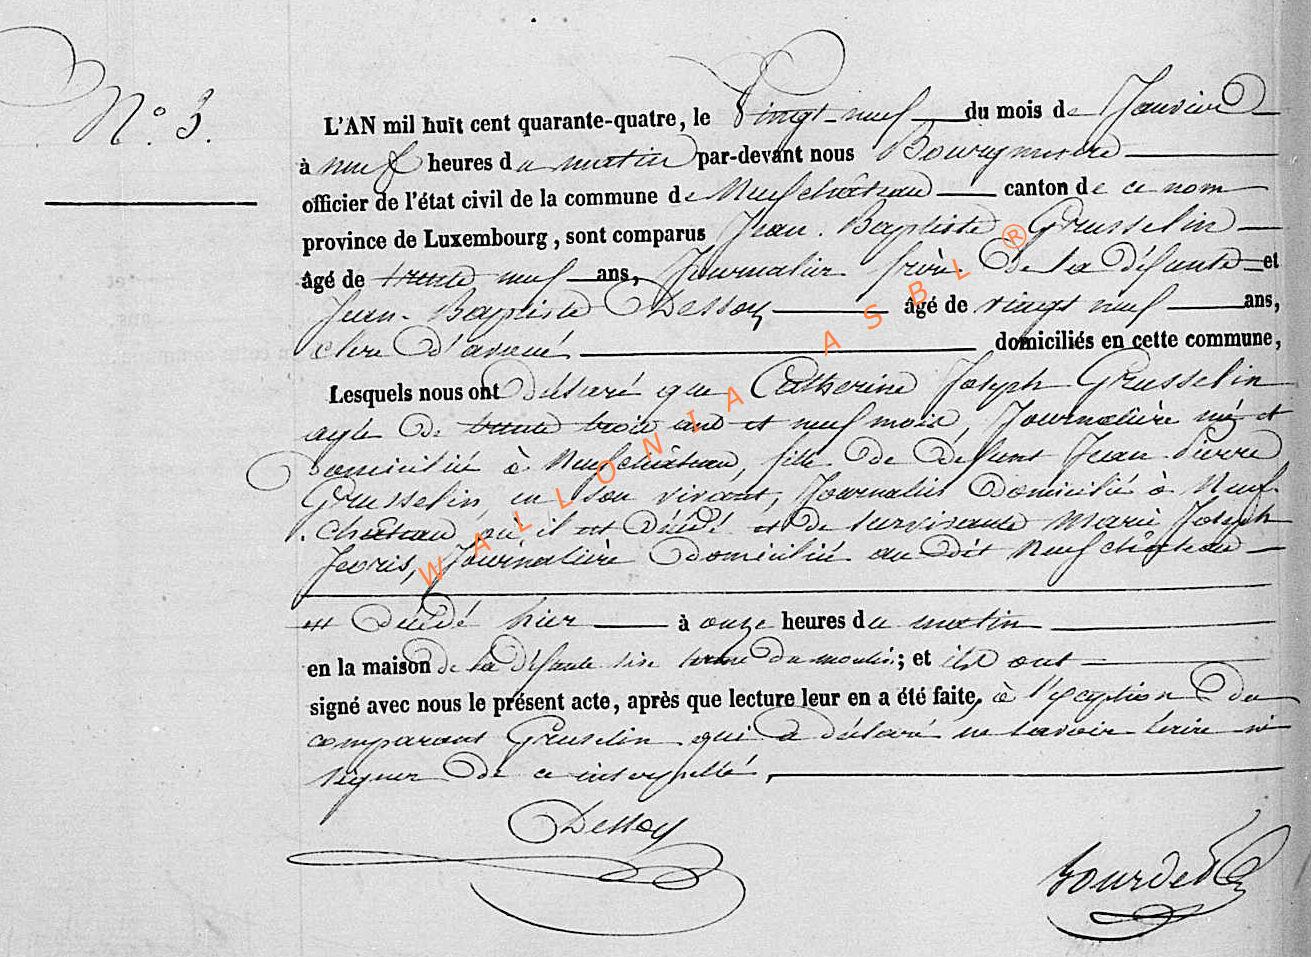 N.° 3.
L'AN mil huit cent quarante-quatre, le Vingt-neuf du mois de Janvier
à neuf heures du matin par-devant nous Bourgmestre
officier de l'état civil de la commune de Neufchâteau canton de ce nom
province de Luxembourg, sont comparus Jean-Baptiste Grusselin
âgé de trente neuf ans, Journalier frère de la défunte et
Jean-Baptiste Dessoy âgé de vingt neuf ans,
clerc d'avoué domiciliés en cette commune,
Lesquels nous ont déclaré que Catherine Joseph Grusselin
agée de trente trois ans et neuf mois, Journalière née et
domiciliée à Neufchâteau, fille de défunt Jean Pierre
Grusselin, en son vivant, Journalier domicilié à Neuf-
château où il est décédé et de survivante Marie Joseph
Journalière domiciliée au dit Neufchâteau
est décédé hier à onze heures du matin
en la maison de la défunte sise du moulin; et ils ont
signé avec nous le présent acte, après que lecture leur en a été faite, à l'exception du
comparant Gruselin qui a déclaré ne savoir écrire ni
signer de ce interpellé,
Dessoy
WALLONIA ASBL ®